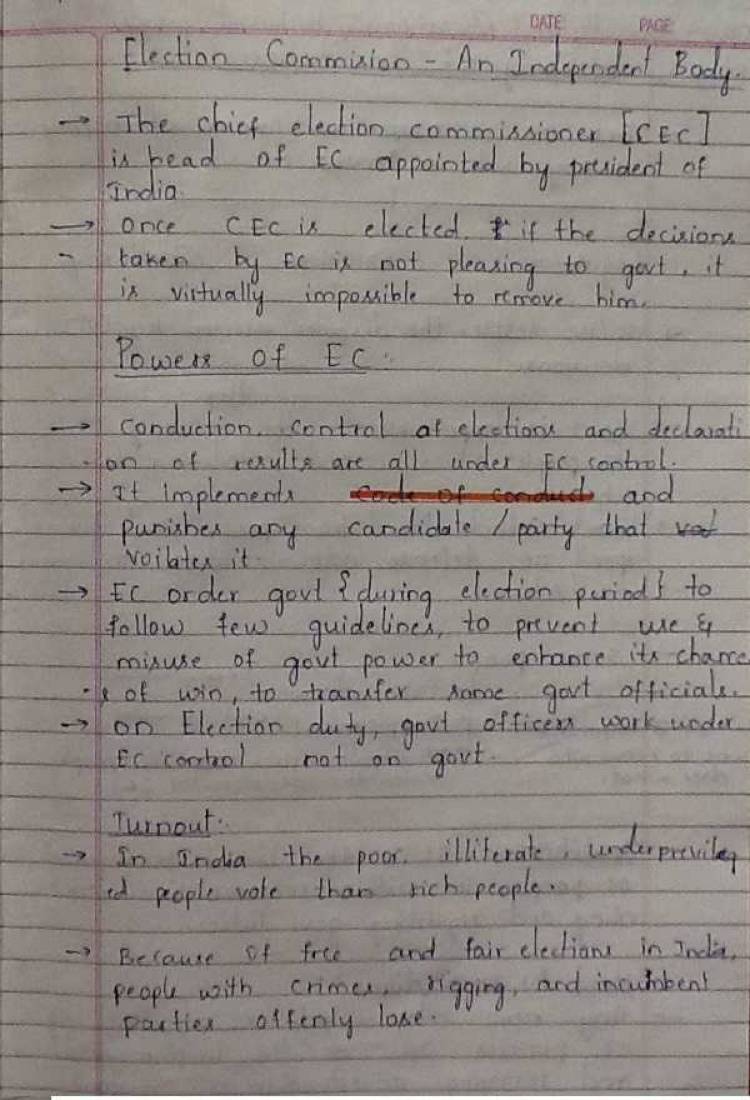 DATE: PAGE:
Election Commision - An Independent Body.
→ The chief election commissioner [CEC]
is head of EC appointed by president of
India.
→ once CEC is elected if the decisions
- taken by EC is not pleasing to govt, it
is virtually impossible to remove him.
Powers of EC.
→ conduction, control of elections and declarati
-on of results are all under EC control.
→ It implements code of conduct and
punishes any candidate / party that
voilates it.
→ EC order govt {during election period} to
follow few guidelines, to prevent use &
misuse of govt power to enhance its chance
-s of win, to transfer some govt officials.
→ on Election duty, govt officers work under
EC control not on govt.
Turnout:
→ In India the poor, illiterate, underprevileg
ed people vote than rich people.
→ Because of free and fair elections in India,
people with crimes, rigging, and incumbent
parties offenly lose.